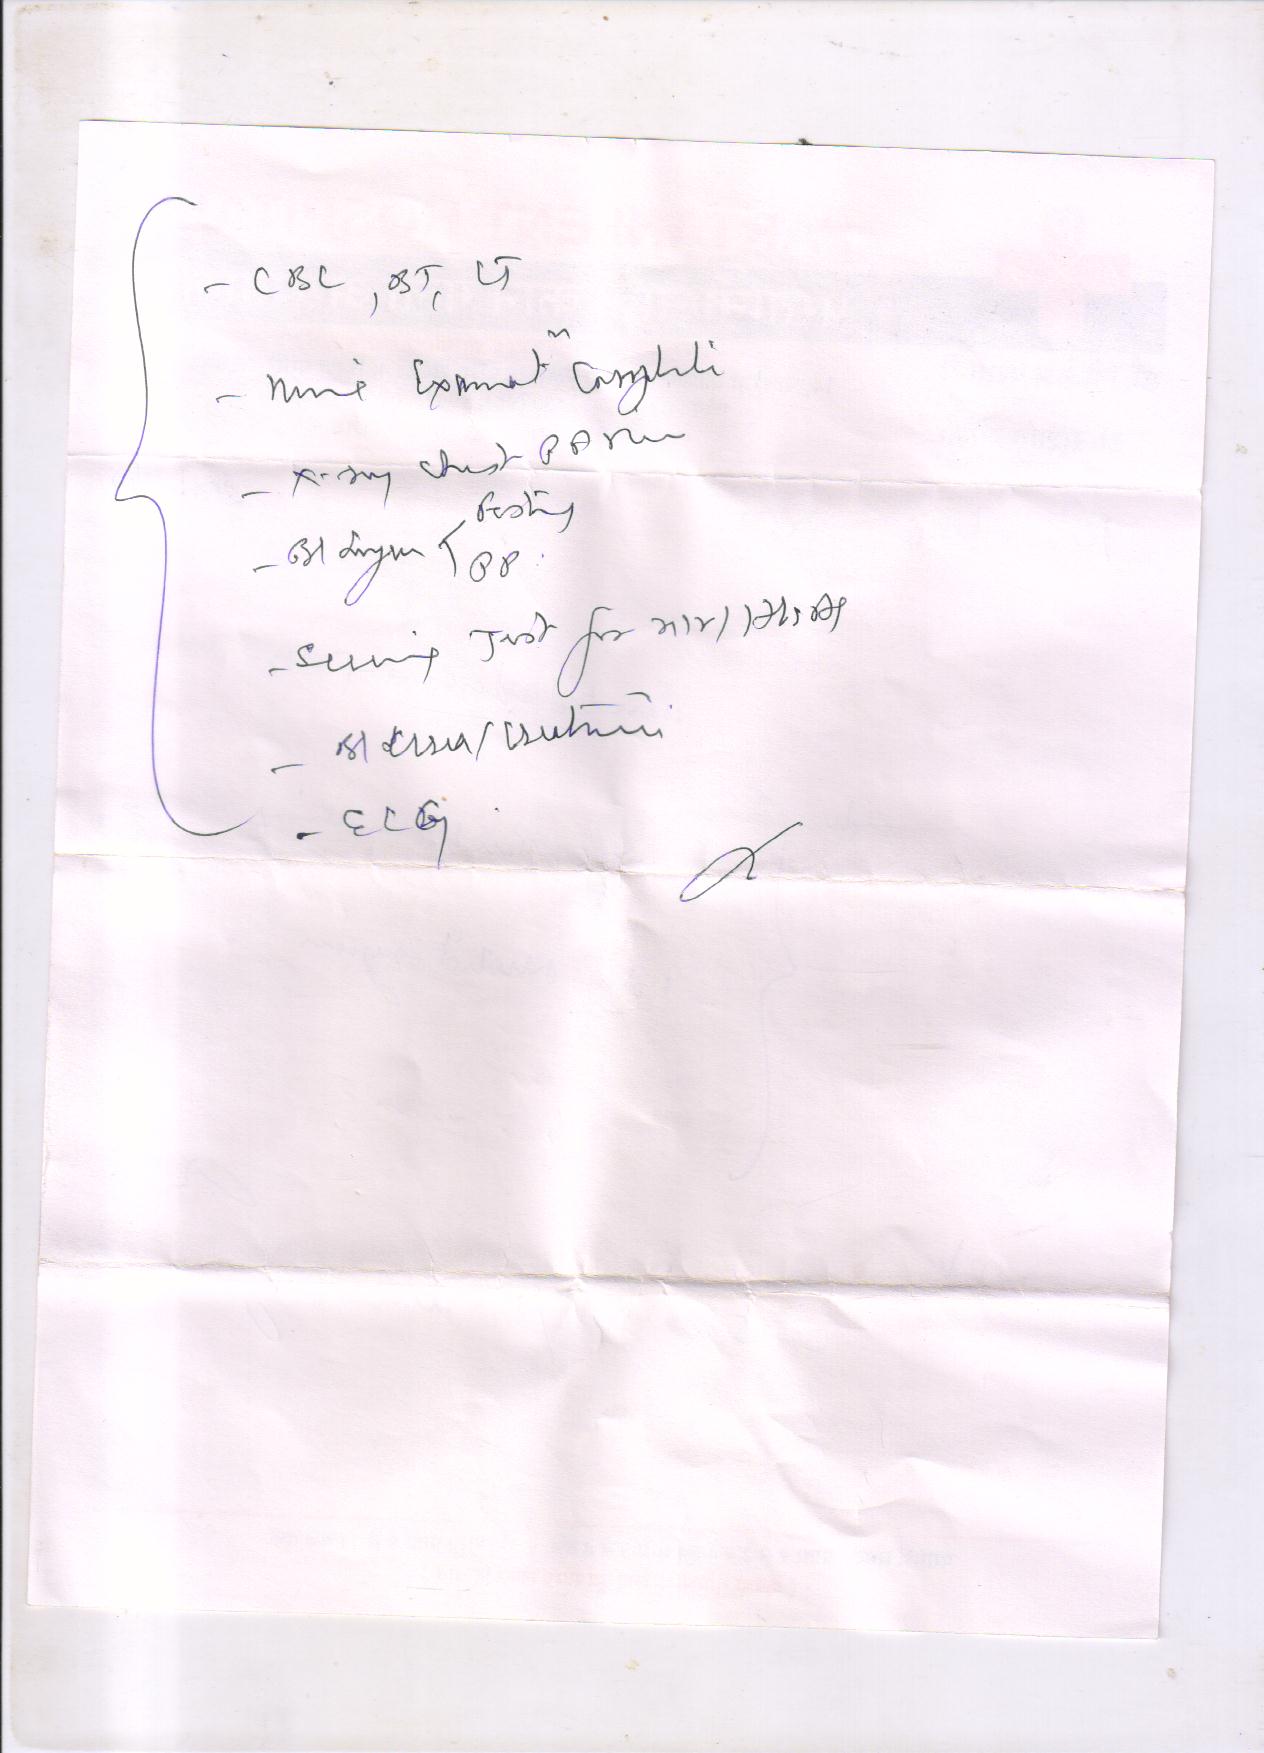 - CBC, BT, CT
- Urine Examinatn Complete
- X-ray Chest PA view
- Bl Sugar < Fasting
PP
- Screening Test for HIV / HBsAg
- Bl Urea / Creatinine
- ECG